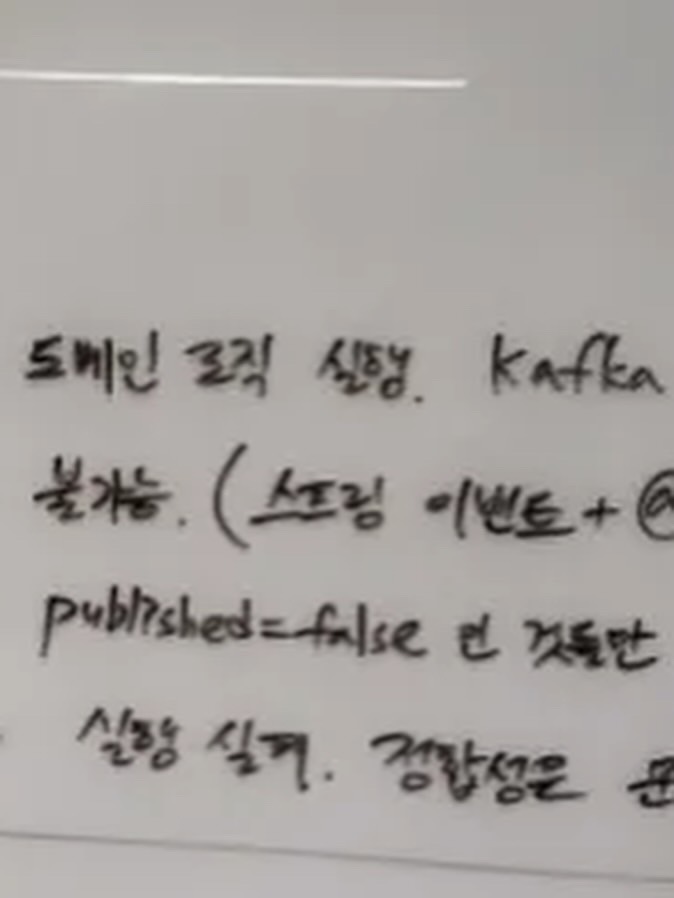 도메인 로직 실행. Kafka
불가능. (스프링 이벤트 + @
published=false 인 것들만
실행 실패. 정합성은 문